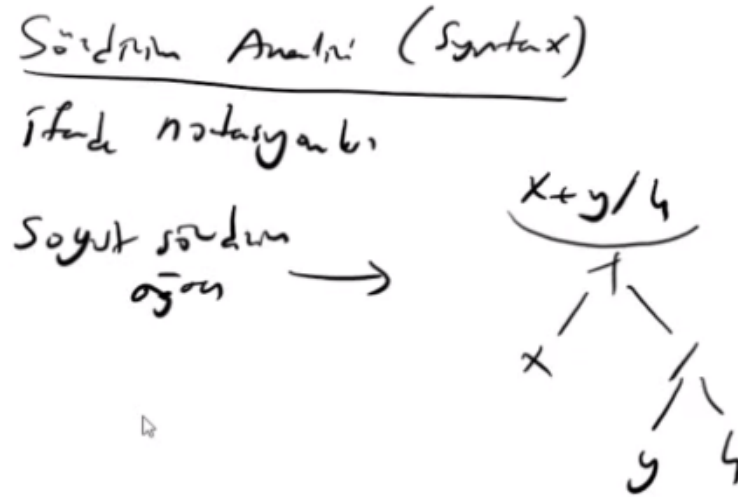 Sözdizim Analizi (Syntax)
ifade notasyonları
Soyut sözdizim
ağacı
x+y/4
+
x
/
y
4